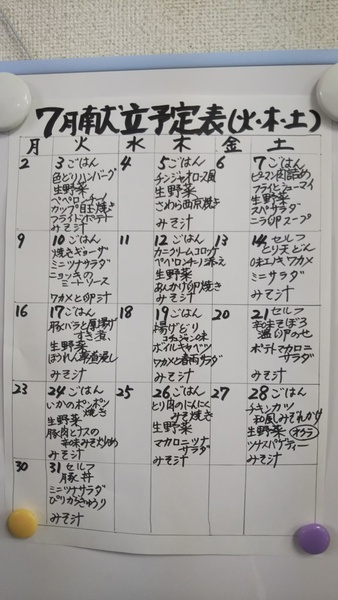 7月献立予定表(火・木・土)
月 火 水 木 金 土
2
3 ごはん
色どりハンバーグ
生野菜
ペペロンチーノ
カップ目玉焼き
フライドポテト
みそ汁
4
5 ごはん
チンジャオロス風
生野菜
さわら西京焼き
みそ汁
6
7 ごはん
ピーマン肉詰め
フライドシューマイ
生野菜
スパサラダ
ニラUPスープ
9
10 ごはん
焼きギョーザ
ミニツナサラダ
ニョッキの
ミートソース
ワカメとUP汁
11
12 ごはん
カニクリームコロッケ
ペペロンチーノ添え
生野菜
あんかけUP焼き
みそ汁
13
14 セルフ
とり天どん
ワカメ
ミニサラダ
みそ汁
16
17 ごはん
豚バラと厚揚げ
すき煮
生野菜
ほうれん草
みそ汁
18
19 ごはん
揚げどり
ボイルキャベツ
ワカメと春雨サラダ
みそ汁
20
21 セルフ
和味そぼろ
のせ
ポテトマカロニ
サラダ
みそ汁
23
24 ごはん
いかのポンポン
焼き
生野菜
豚肉とナスの
和味みそ炒め
みそ汁
25
26 ごはん
とり肉のにんにく
みそ焼き
生野菜
マカロニツナ
サラダ
みそ汁
27
28 ごはん
チキンカツ
和風みぞれかけ
生野菜 オクラ
ツナスパゲティー
みそ汁
30
31 セルフ
豚丼
ミニツナサラダ
ぴりからきゅうり
みそ汁